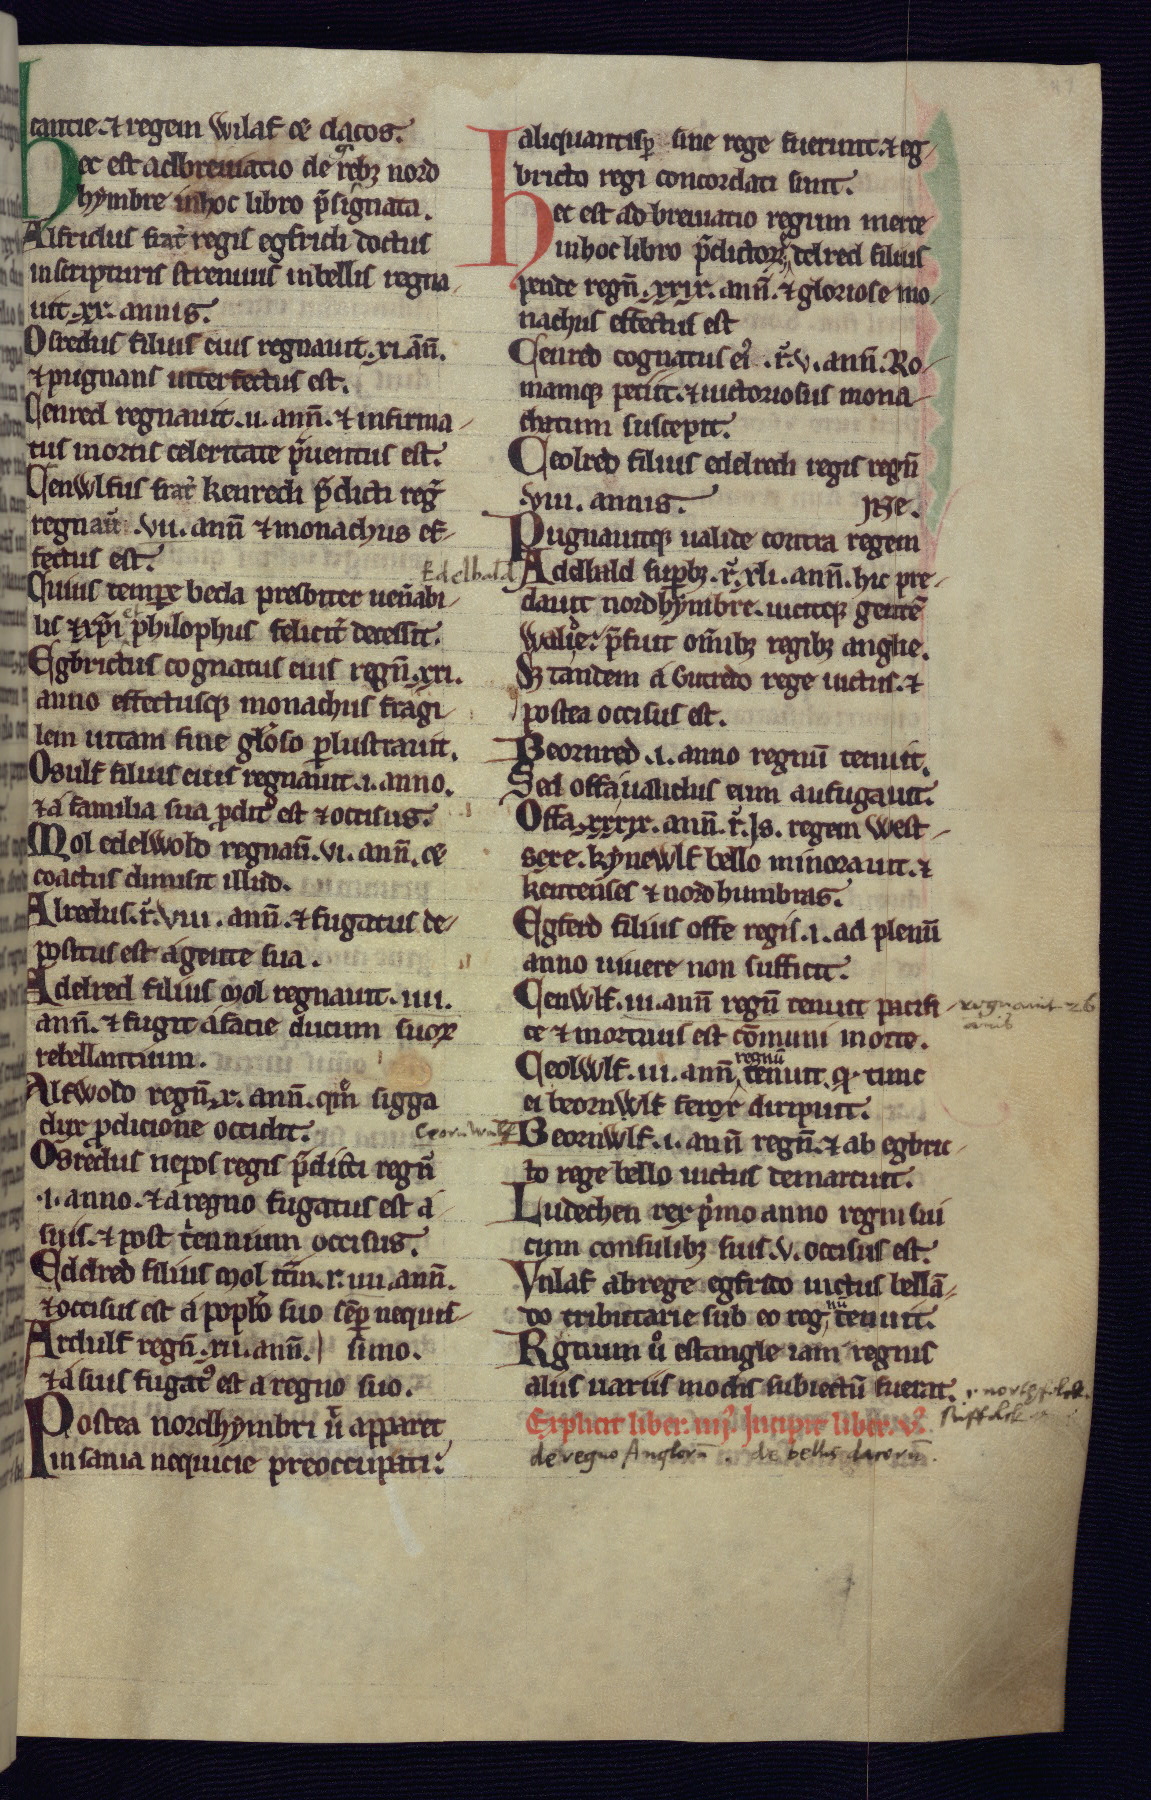 cantie. ⁊ regem Wilaf ee dacos.
Hec est adbreuiatio de rebꝫ nord
hymbre in hoc libro p̃signata.
Alfridus frat̃ regis egfridi doctus
in scripturis strenuus in bellis regna-
uit .xx. annis.
Osredus filius eius regnauit .xi. añ.
⁊ pugnans interfectus est.
Cenred regnauit .ii. anñ. ⁊ infirma-
tus mortis celeritate p̃uentus est.
CenWlfus frat̃ kenredi p̃dicti reḡ
regnaũ .vii. anñ ⁊ monachus ef-
fectus est.
Cuius tempore beda presbiter ueñabi-
lis ⁊ xp̃i philophus felicit̃ decessit.
Egbrictus cognatus eius regñ .xxi.
anno effectusqꝫ monachus fragi
lem uitam fine gl̃oso p̱lustrauit.
Osulf filius eius regnauit .i. anno.
⁊ a familia sua p̱dit᷒ est ⁊ occisus.
Mol edelWold regnañ .vi. anñ. ee
coactus dimisit illud.
Alredus .r̃. viii. anñ. ⁊ fugatus de-
positus est a gente sua.
Adelred filius Mol regnauit .iiii.
anñ. ⁊ fugit a facie ducum suoꝝ
rebellantium.
AlfWold regñ .x. anñ. qm̃ sigga
dux p̱dicione occidit.
Osredus nepos regis p̃dicti regñ
.i. anno. ⁊ a regno fugatus est a
suis. ⁊ post t̃ennium occisus.
Edelred filius Mol itm̃ .r. iiii. anñ.
⁊ occisus est a poplo suo sep̱ nequis-
Ardulf regñ .xii. anñ. ) simo.
⁊ a suis fugat᷒ est a regno suo.
Postea nordhymbri ũ apparet
insania nequicie preoccupati:
aliquantisp̱ sine rege fuerunt. ⁊ eg-
bricto regi concordati sunt.
Hec est adbreuiatio regum merce
in hoc libro p̃dictoꝝ. Edelred filius
pende regñ .xxix. anñ. ⁊ gloriose mo-
nachus effectus est
Cenred cognatus ei᷒ .r̃. v. anñ. Ro-
mamqꝫ petiit. ⁊ uictoriosus mona-
chatum suscepit.
Ceolred filius edelredi regis regñ
.viii. annis. Ine.
Pugnauitqꝫ ualide contra regem
Edelbald
Adelbald sup̱bꝫ .r̃. xli. anñ. hic pre-
dauit nordhymbre. uicitqꝫ gente᷒
Walie. p̃fuit om̃ibꝫ regibꝫ anglie.
Sꝫ tandem a Cutredo rege uictus. ⁊
postea occisus est.
Beornred .i. anno regnũ tenuit.
Sed offa ualidus eum aufugauit.
Offa .xxxix. anñ. r̃. Is. regem West-
sexe. kyneWlf bello minorauit. ⁊
kentenses ⁊ nordhumbras.
Egferd filius offe regis .i. ad plenũ
anno uiuere non sufficit.
CenWlf .iii. anñ regñ tenuit pacifi-
regnauit 26
anis
ce ⁊ mortuus est cõmuni morte.
CeolWlf .iii. anñ regnũ tenuit. q̃ tunc
ei beornWlf ferox diripuit.
BeornWlf .i. anñ regñ. ⁊ ab egbric-
to rege bello uictus demarcuit.
Ludechen rex p̃mo anno regni sui
cum consulibꝫ suis .v. occisus est.
Vuilaf ab rege egfrido uictus bellã-
do tributarie sub eo regnũ tenuit.
Regnum ũ estangle iam regnis
aliis uariis modis subiectũ fuerat.
northfolck.
suffolck
Explicit liber .iiii᷒. Incipit liber .v᷒.
de regno Anglorũ . de bellis dacorũ.